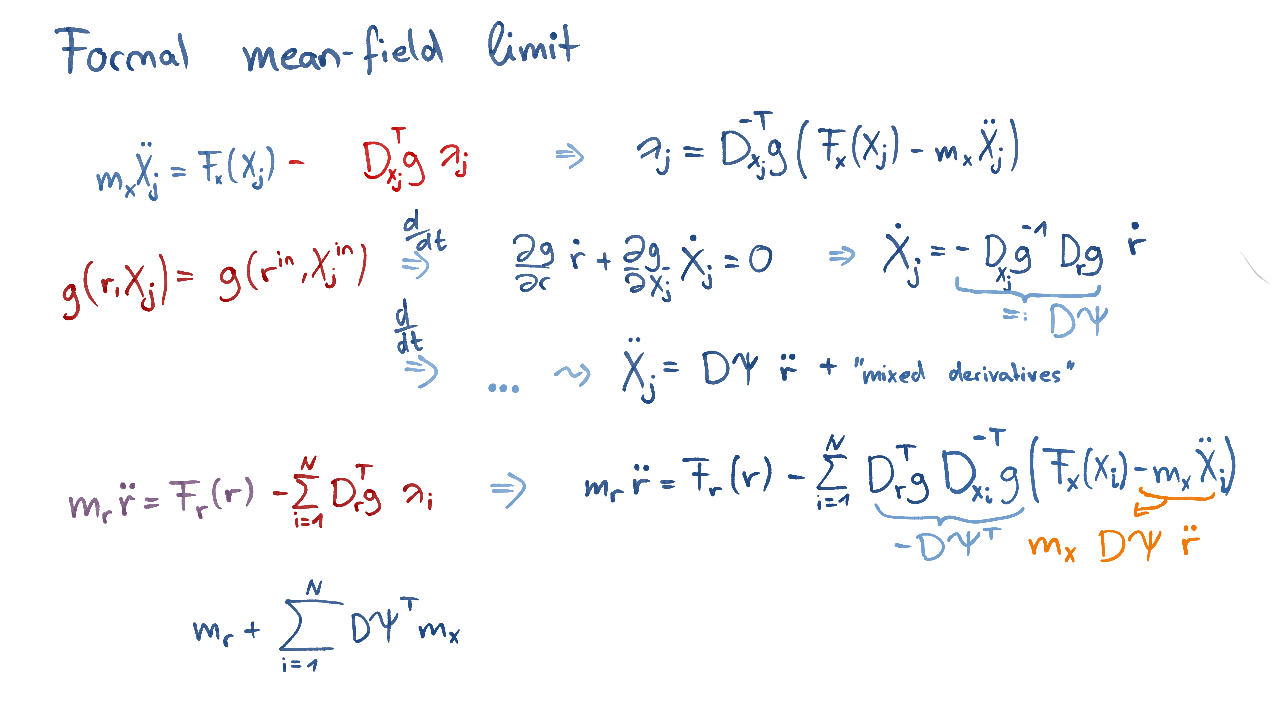 Formal mean-field limit
m_x Ẍ_j = F_x(X_j) - D_{x_j}^T g λ_j ⇒ λ_j = D_{x_j}^{-T} g (F_x(X_j) - m_x Ẍ_j)
g(r, X_j) = g(r^{in}, X_j^{in}) d/dt ⇒ ∂g/∂r ṙ + ∂g/∂X_j Ẋ_j = 0 ⇒ Ẋ_j = - D_{x_j} g^{-1} D_r g ṙ
=: DΨ
d/dt ⇒ ... ⇝ Ẍ_j = DΨ r̈ + "mixed derivatives"
m_r r̈ = F_r(r) - ∑_{i=1}^N D_r^T g λ_i ⇒ m_r r̈ = F_r(r) - ∑_{i=1}^N D_r^T g D_{x_i}^{-T} g (F_x(X_i) - m_x Ẍ_i)
-DΨ^T m_x DΨ r̈
m_r + ∑_{i=1}^N DΨ^T m_x